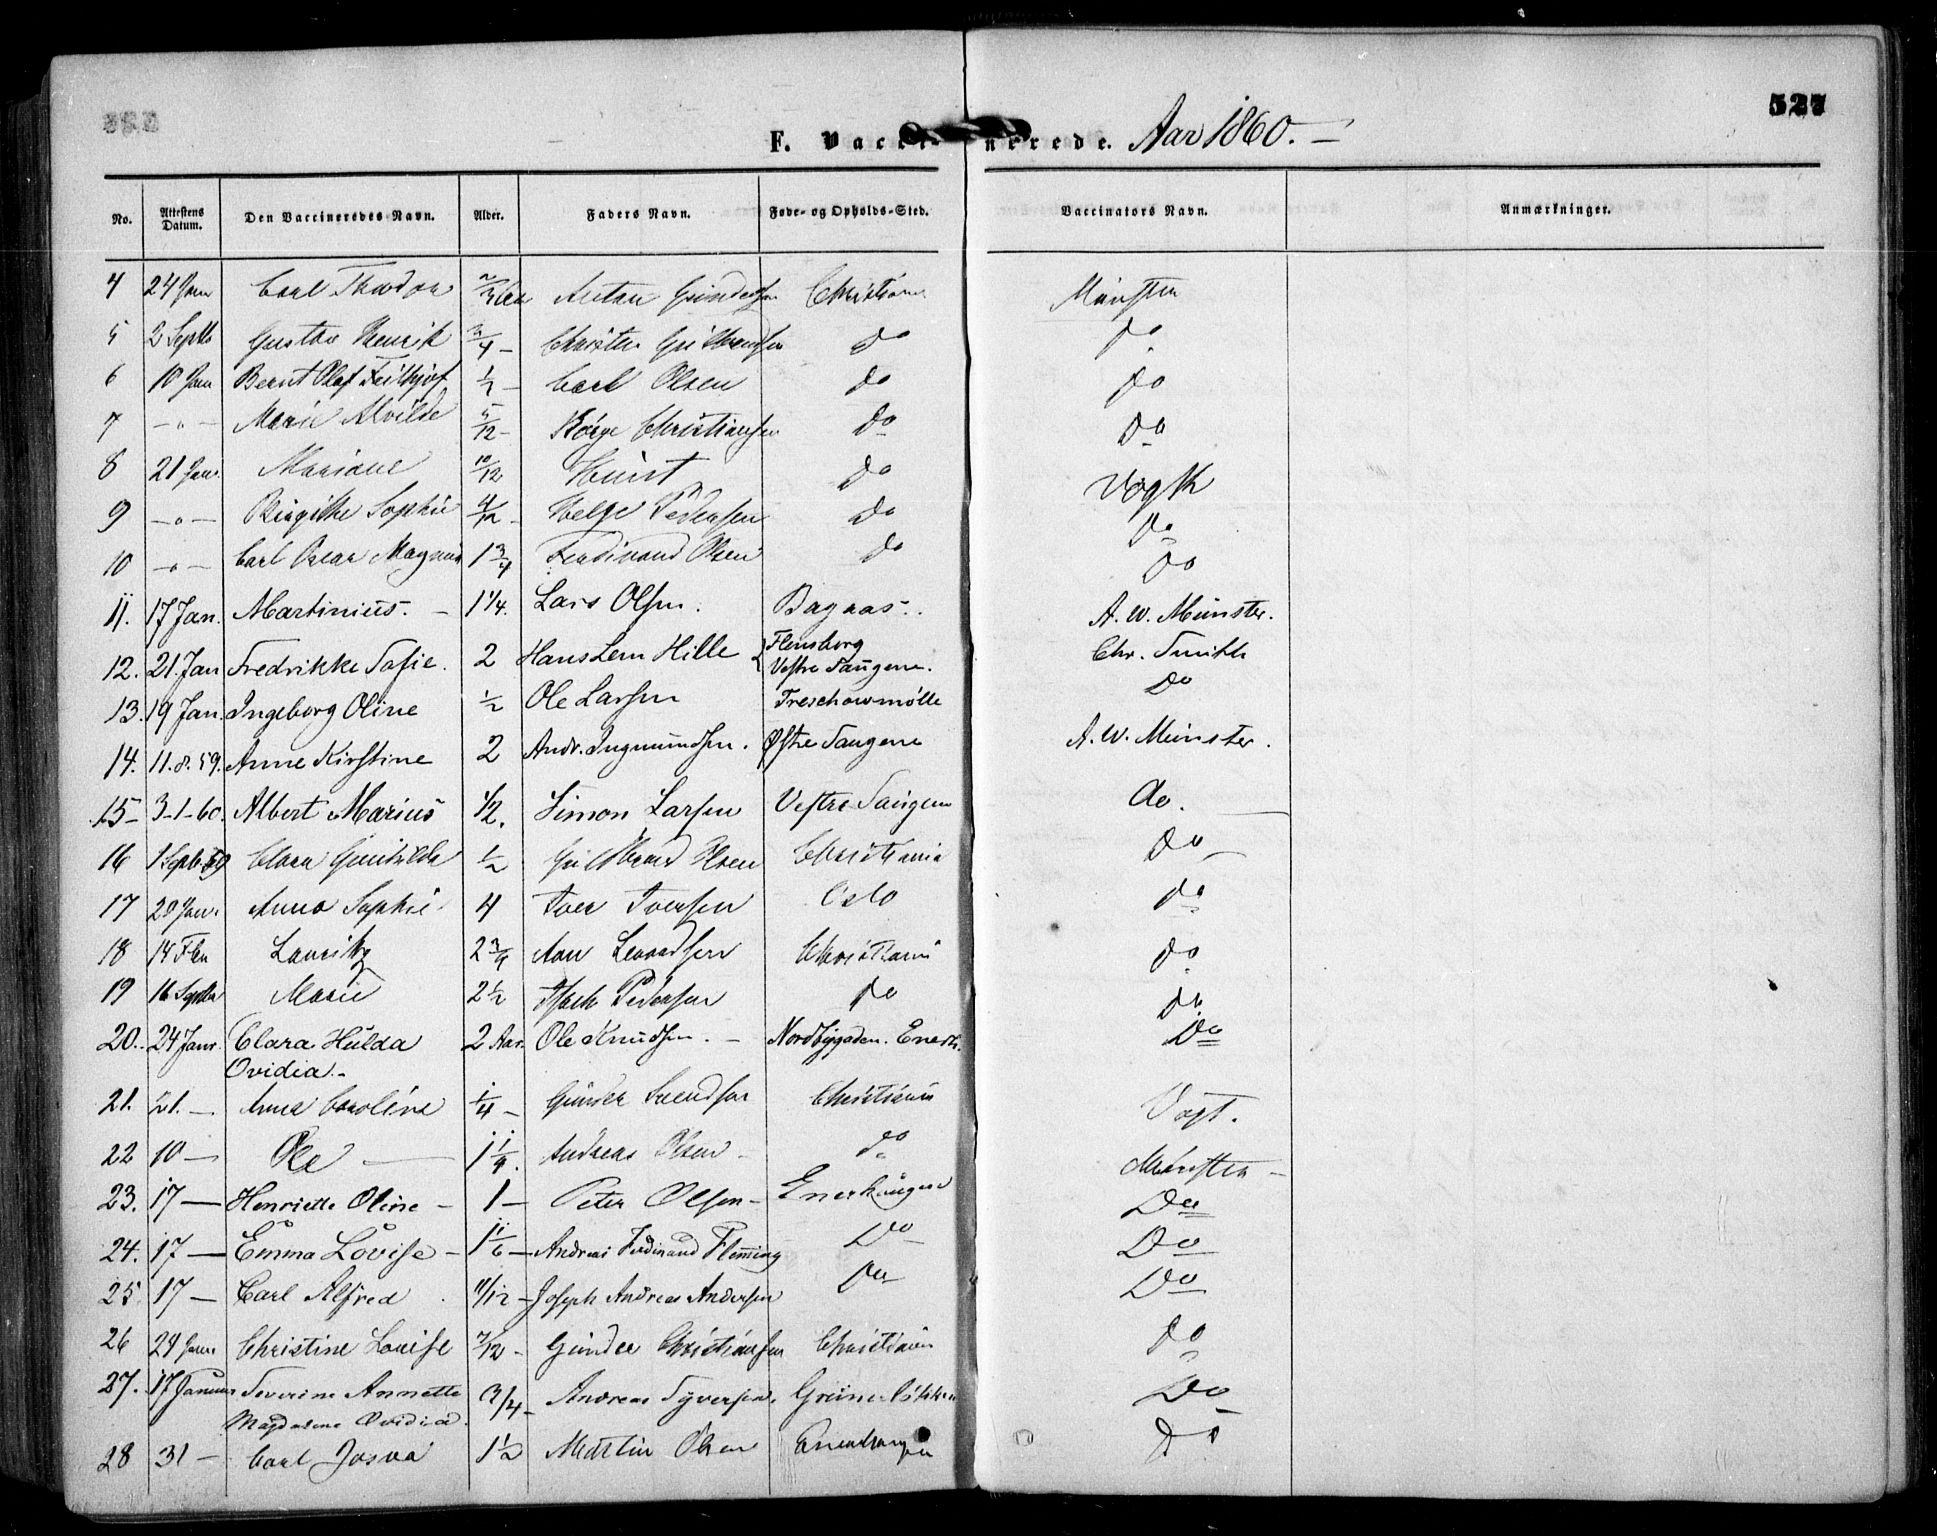 527
F. Vacci nerede. Aar 1860. –
No. Attestens Datum. Den Vaccineredes Navn. Alder. Faders Navn. Føde- og Opholds-Sted. Vaccinators Navn. Anmærkninger.
4 24 Jan Carl Anton Christiania Münster
5 2 Septb Gustav Henrik 3/4 – Do Do
6 10 Jan Bernt Olaf Frithjof ½ – Carl Olsen Do Do
7 – " – Marie Alvilde 5/12 – Børge Christiansen Do Do
8 21 Jan Mariane 10/12 Do Vogth
9 – " – Birgithe Sophie 4/12 – Helge Pedersen Do Do
10 – " – Carl Oscar Magnus 1 3/4 Ferdinand Olsen Do Do
11. 17 Jan. Martinius. – 1 1/4. Lars Olsen. Bagaas. A. W. Münster.
12. 21. Jan Fredrikke Sofie. 2 Hans Lem Hille Flensborg Vestre Taugene. Chr. Smith
13. 19 Jan. Ingeborg Oline ½ Ole Larsen Treschowmølle Do
14. 11. 8. 59. Anne Kirstine 2 Andr. Ingmundsen. Østre Taugene A. W. Münster.
15 – 3–1–60. Albert Marius 1/2. Simon Larsen Vestre Taugene do.
16 1 Septb 59 Clara Gunhilde ½ Christiania Do –
17 20 Jan. Anna Sophie 4 Iver Iversen Oslo do
18 14 Lauritz 2 3/4 Christiania do
19 16 Septbr Marie 2 ½ Pedersen do do
20. 24 Janr. Clara Hulda Ovidia. – 2 Aar. Ole Knudsen. – Nordbygaden. Enerh. Do
21. 21. – Anna Caroline 1/4 – Gunder Svendsen Christiania Vogt.
22 10 – Ole – 1 1/4. Andreas Olsen – do Münster –
23. 17 – Henriette Oline – 1 – Peter Olsen – Enerhaugen Do
24. 17 – Emma Lovise – 1 1/6 – Andreas Ferdinand Flemming Do Do
25. 17 – Carl Alfred. 11/12 – Joseph Andreas Andersen Do Do
26 24 Jan Christine Louise 7/12 – Gunder Christiansen Christiania do
27. 17 Januar Severine Annette Magdalene Ovidia. 3/4 – Andreas Syversen. Grünerløkken Do
28 31 – Carl Josva 1 ½ Martin Olsen Enerhaugen Do